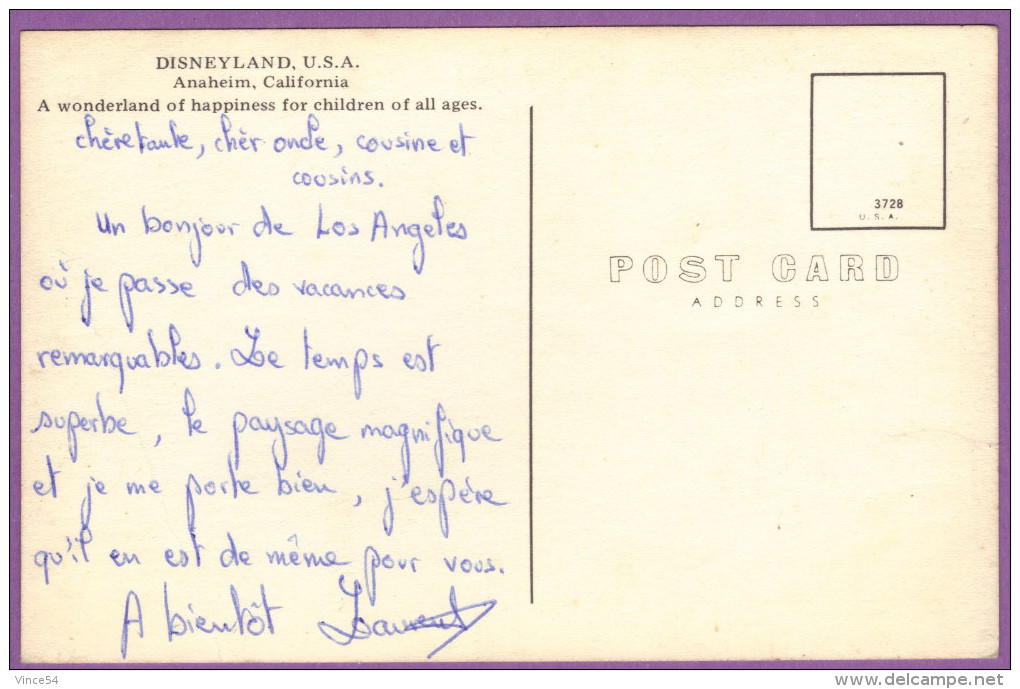 DISNEYLAND, U.S.A.
Anaheim, California
A wonderland of happiness for children of all ages.
chère tante, cher oncle, cousine et
cousins.
Un bonjour de Los Angeles
où je passe des vacances
remarquables. Le temps est
superbe, le paysage magnifique
et je me porte bien, j'espère
qu'il en est de même pour vous.
A bientôt Laurent
3728
U.S.A.
POST CARD
ADDRESS
Vince54
delcampe.net